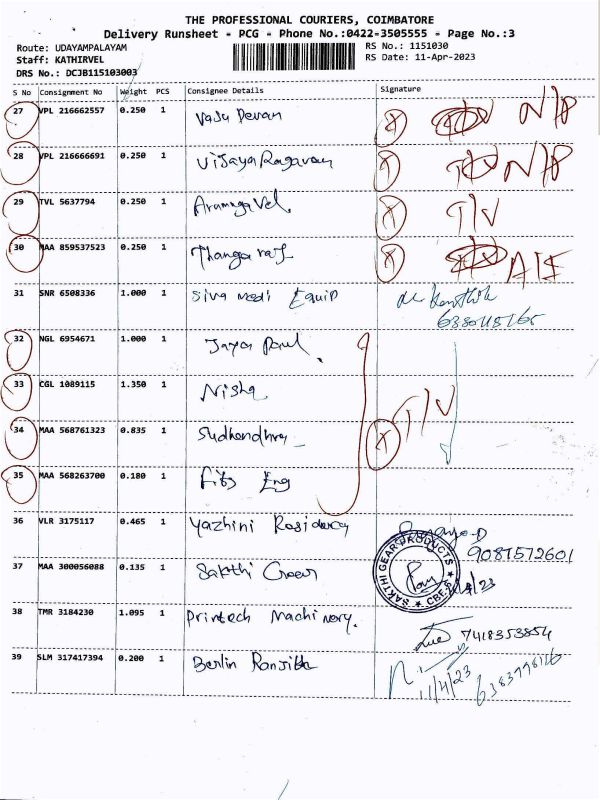 THE PROFESSIONAL COURIERS, COIMBATORE
Delivery Runsheet - PCG - Phone No.:0422-3505555 - Page No.:3
Route: UDAYAMPALAYAM
Staff: KATHIRVEL
DRS No.: DCJB115103003
RS No.: 1151030
RS Date: 11-Apr-2023
S No Consignment No Weight PCS Consignee Details Signature
27 VPL 216662557 0.250 1 Vasu Devan N/P
28 VPL 216666691 0.250 1 Vijaya Ragavan N/P
29 TVL 5637794 0.250 1 ArumugaVel. T/V
30 MAA 859537523 0.250 1 Thangaraj
31 SNR 6508336 1.000 1 Siva medi Equip
32 NGL 6954671 1.000 1 Jaya Paul
33 CGL 1089115 1.350 1 Nisha T/V
34 MAA 568761323 0.835 1
35 MAA 568263700 0.180 1 Eng
36 VLR 3175117 0.465 1 Yazhini Residency
9087572601
37 MAA 300056088 0.135 1 Sakthi Gear
SAKTHI GEAR PRODUCTS CBE
38 TMR 3184230 1.095 1 Printech Machinery.
7418353854
39 SLM 317417394 0.200 1 Berlin
11/4/23